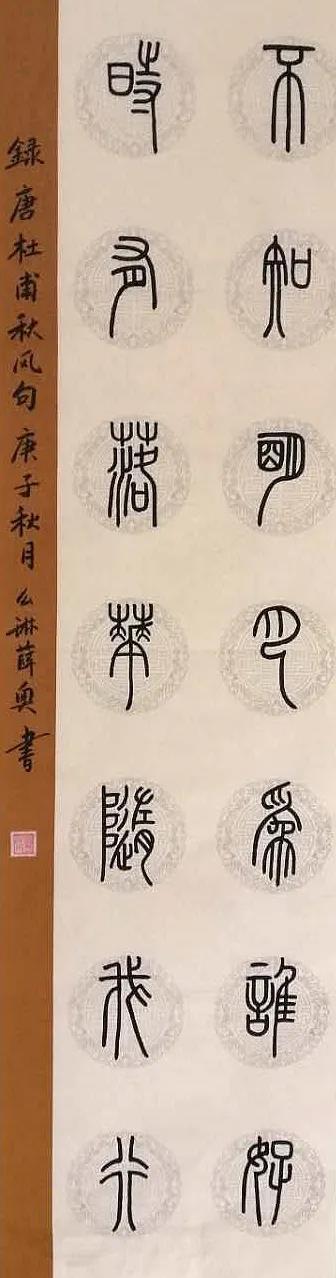 不知明月為誰好
時有落華隨我行
録唐杜甫秋风句 庚子秋月 琳薛奥書